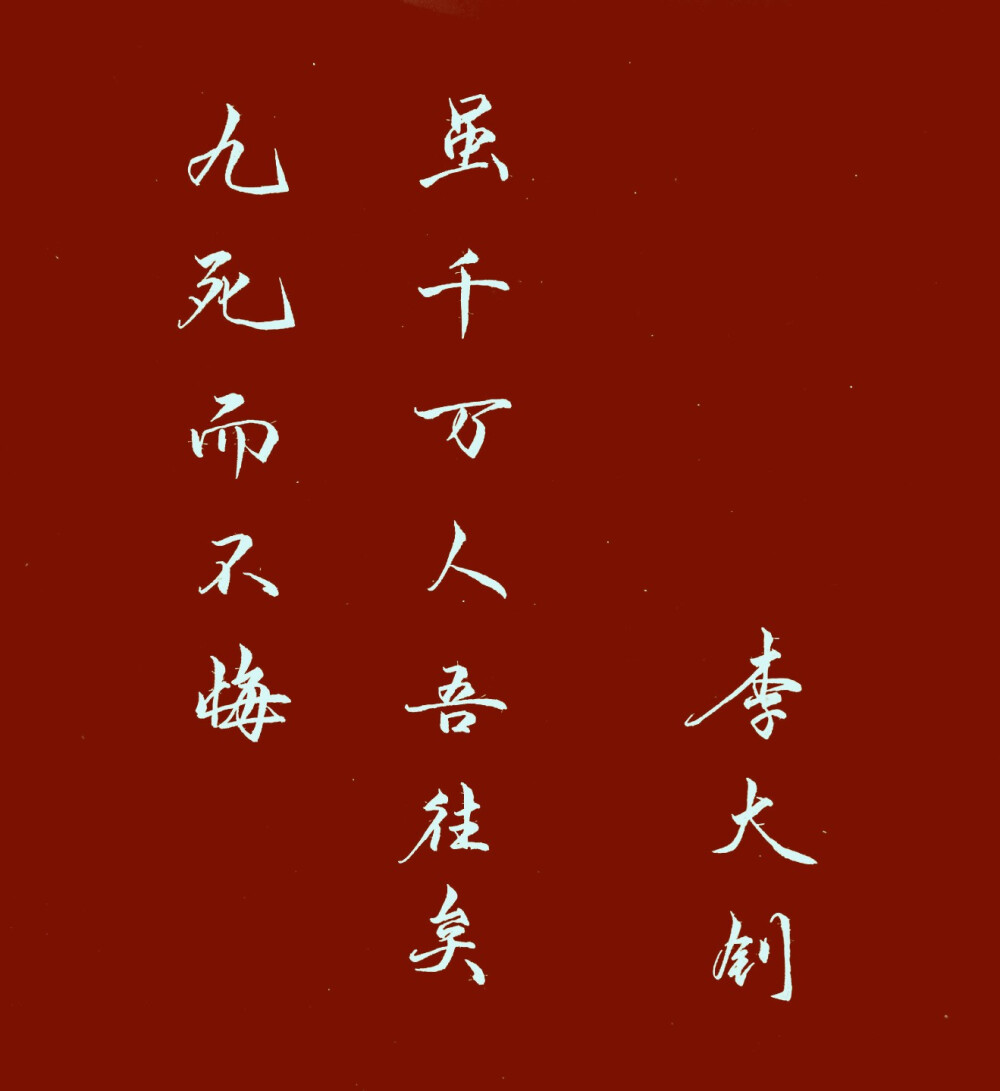 李大钊
虽千万人吾往矣
九死而不悔